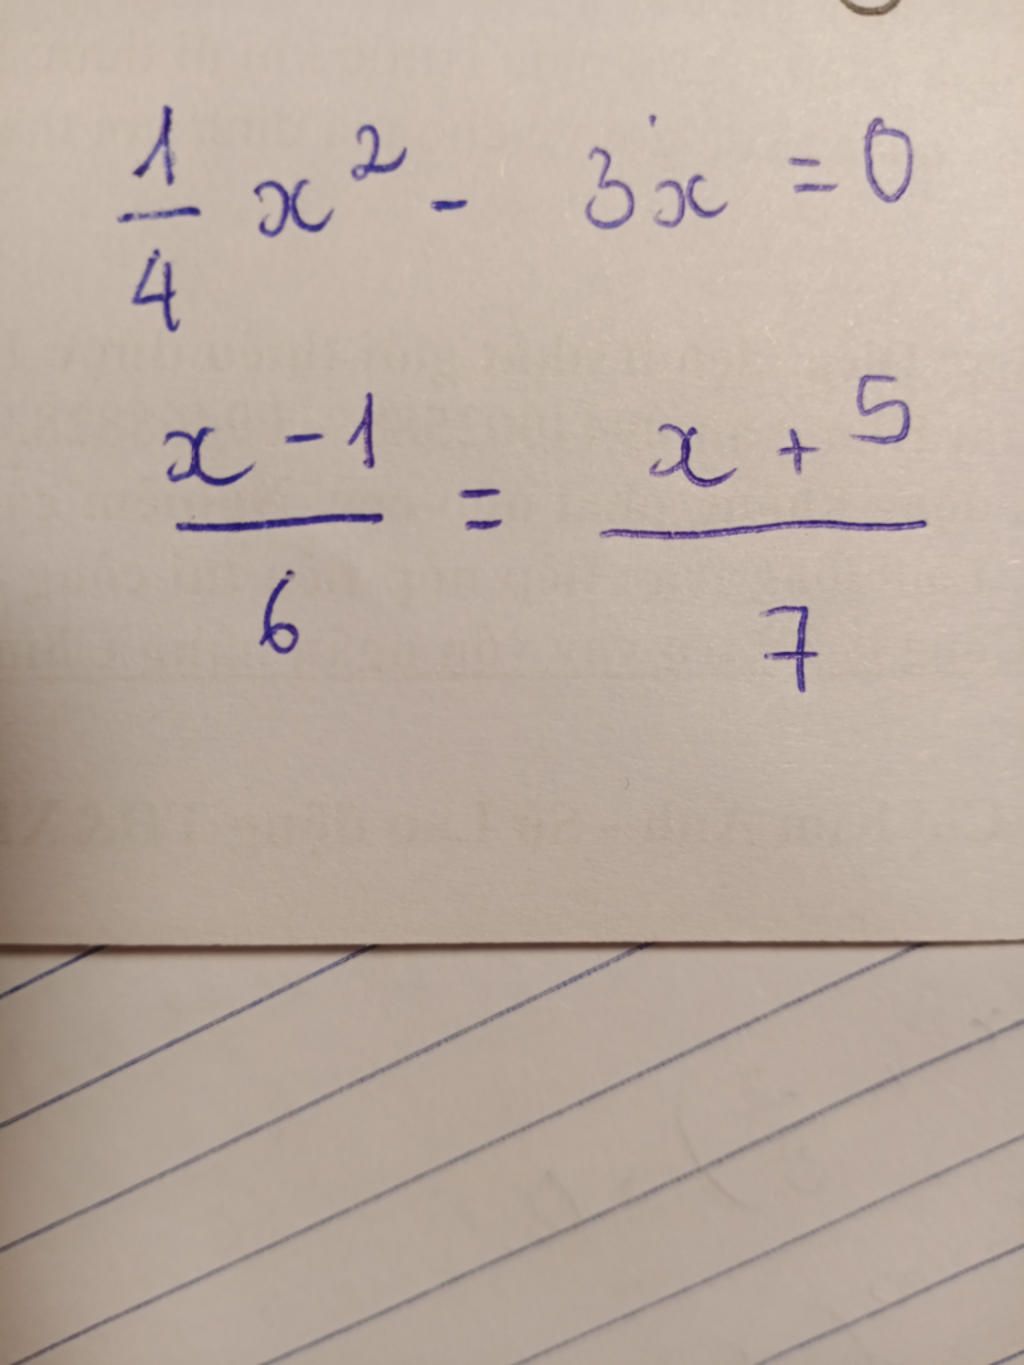 1/4 x² - 3x = 0
x - 1 / 6 = x + 5 / 7